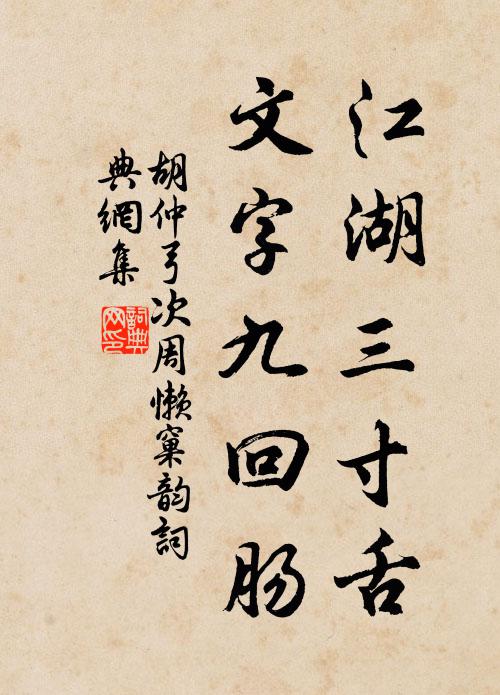 江湖三寸舌
文字九回肠
胡仲弓次周懒窠韵詞
典網集
詞典网印